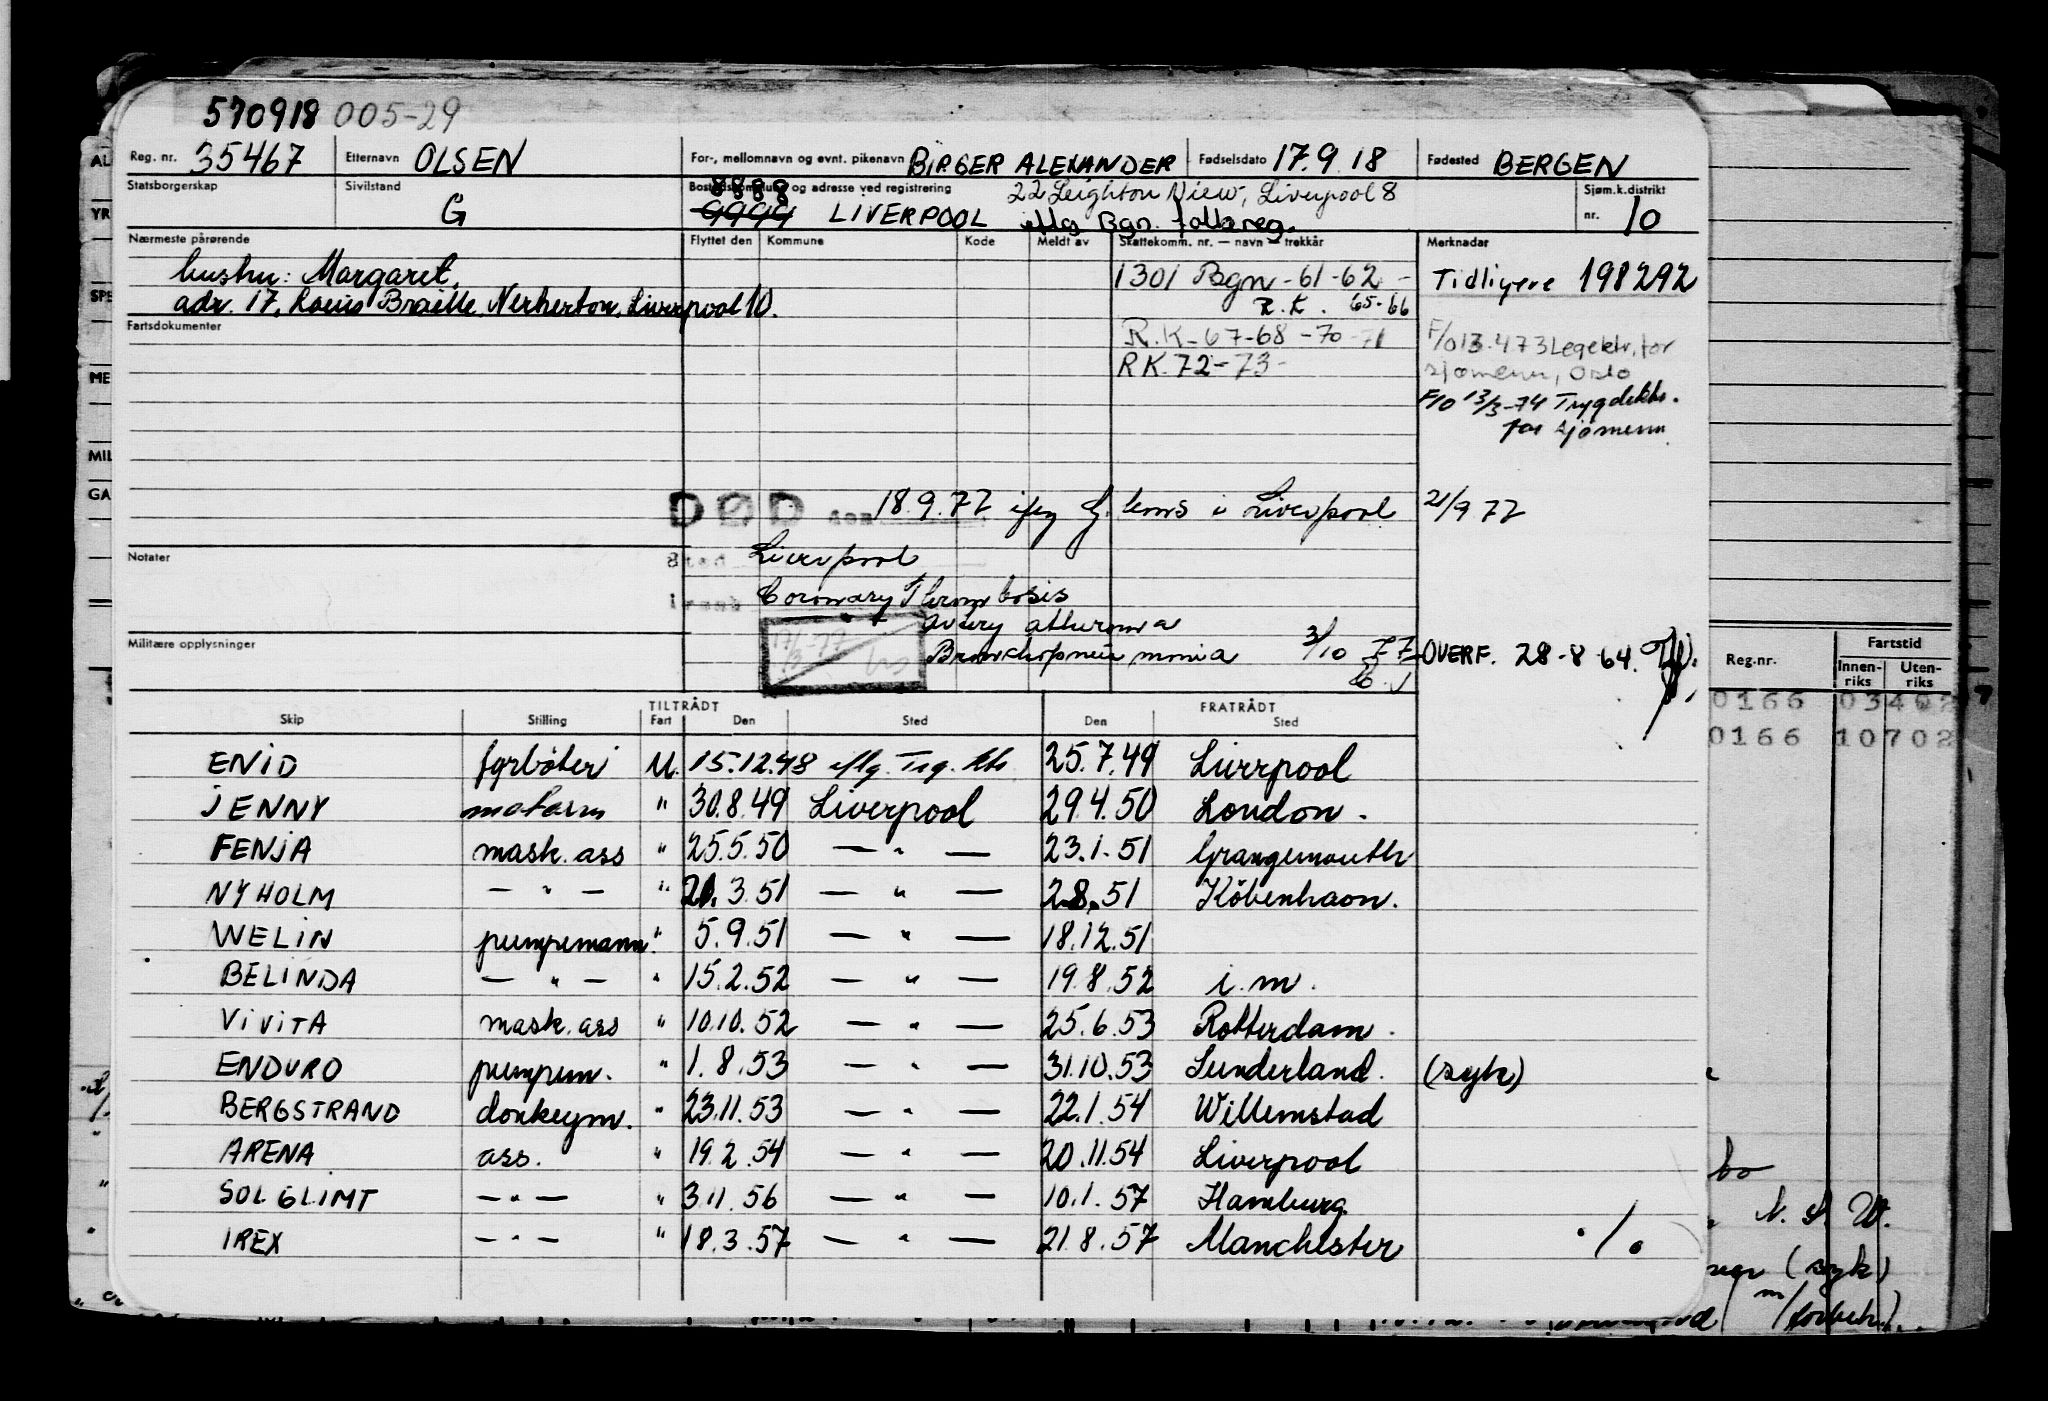 570918 005-29
Reg. nr. 35467 Etternavn OLSEN For-, mellomnavn og evnt. pikenavn BIRGER ALEXANDER Fødselsdato 17.9.18 Fødested BERGEN
Statsborgerskap Sivilstand G Bostedskommune og adresse ved registrering 8888 9999 LIVERPOOL 22 Leighton View, Liverpool 8 iflg Bgn. folkereg. Sjøm.k.distrikt nr. 10
Nærmeste pårørende Flyttet den Kommune Kode Meldt av Skattekomm. nr. — navn — trekkår Merknader
hustru: Margaret, 1301 Bgn - 61-62 - Tidligere 198292
adr. 17, Louis Braille, Netherton, Liverpool 10. R.K. 65-66
Fartsdokumenter R.K-67-68-70-71 F/O 13.473 Legektr. for
RK.72-73- sjømenn, Oslo
F/O 13/3-74 Trygdektr.
for sjømenn
DØD den 18.9.77 iflg G. kons i Liverpool 21/9 77
Notater Sted Liverpool
Coronary Thrombosis
Artery atheroma
Militære opplysninger Bronchopneumonia 3/10 77 OVERF. 28-8-64.
TILTRÅDT FRATRÅDT
Skip Stilling Fart Den Sted Den Sted
ENID fyrbøter U. 15.12.48 iflg. Trg. ktr. 25.7.49 Liverpool
JENNY motorm " 30.8.49 Liverpool 29.4.50 London.
FENJA mask. ass " 25.5.50 — " — 23.1.51 Grangemouth
NYHOLM — " — " 21.3.51 — " — 2.8.51 København.
WELIN pumpemann. " 5.9.51 — " — 18.12.51
BELINDA — " — " 15.2.52 — " — 19.8.52 i.m.
VIVITA mask. ass " 10.10.52 — " — 25.6.53 Rotterdam.
ENDURO pumpem. " 1.8.53 — " — 31.10.53 Sunderland. (syk)
BERGSTRAND donkeym. " 23.11.53 — " — 22.1.54 Willemstad
ARENA ass. " 19.2.54 — " — 20.11.54 Liverpool
SOLGLIMT — " — " 3.11.56 — " — 10.1.57 Hamburg
IREX — " — " 18.3.57 — " — 21.8.57 Manchester ./.
AL
YR
SPE
ME
MIL
GA
Reg.nr. Fartstid
Innen-riks Uten-riks
0166 03402
0166 10702
N.S.W.
(syk)
m/forbeh.).